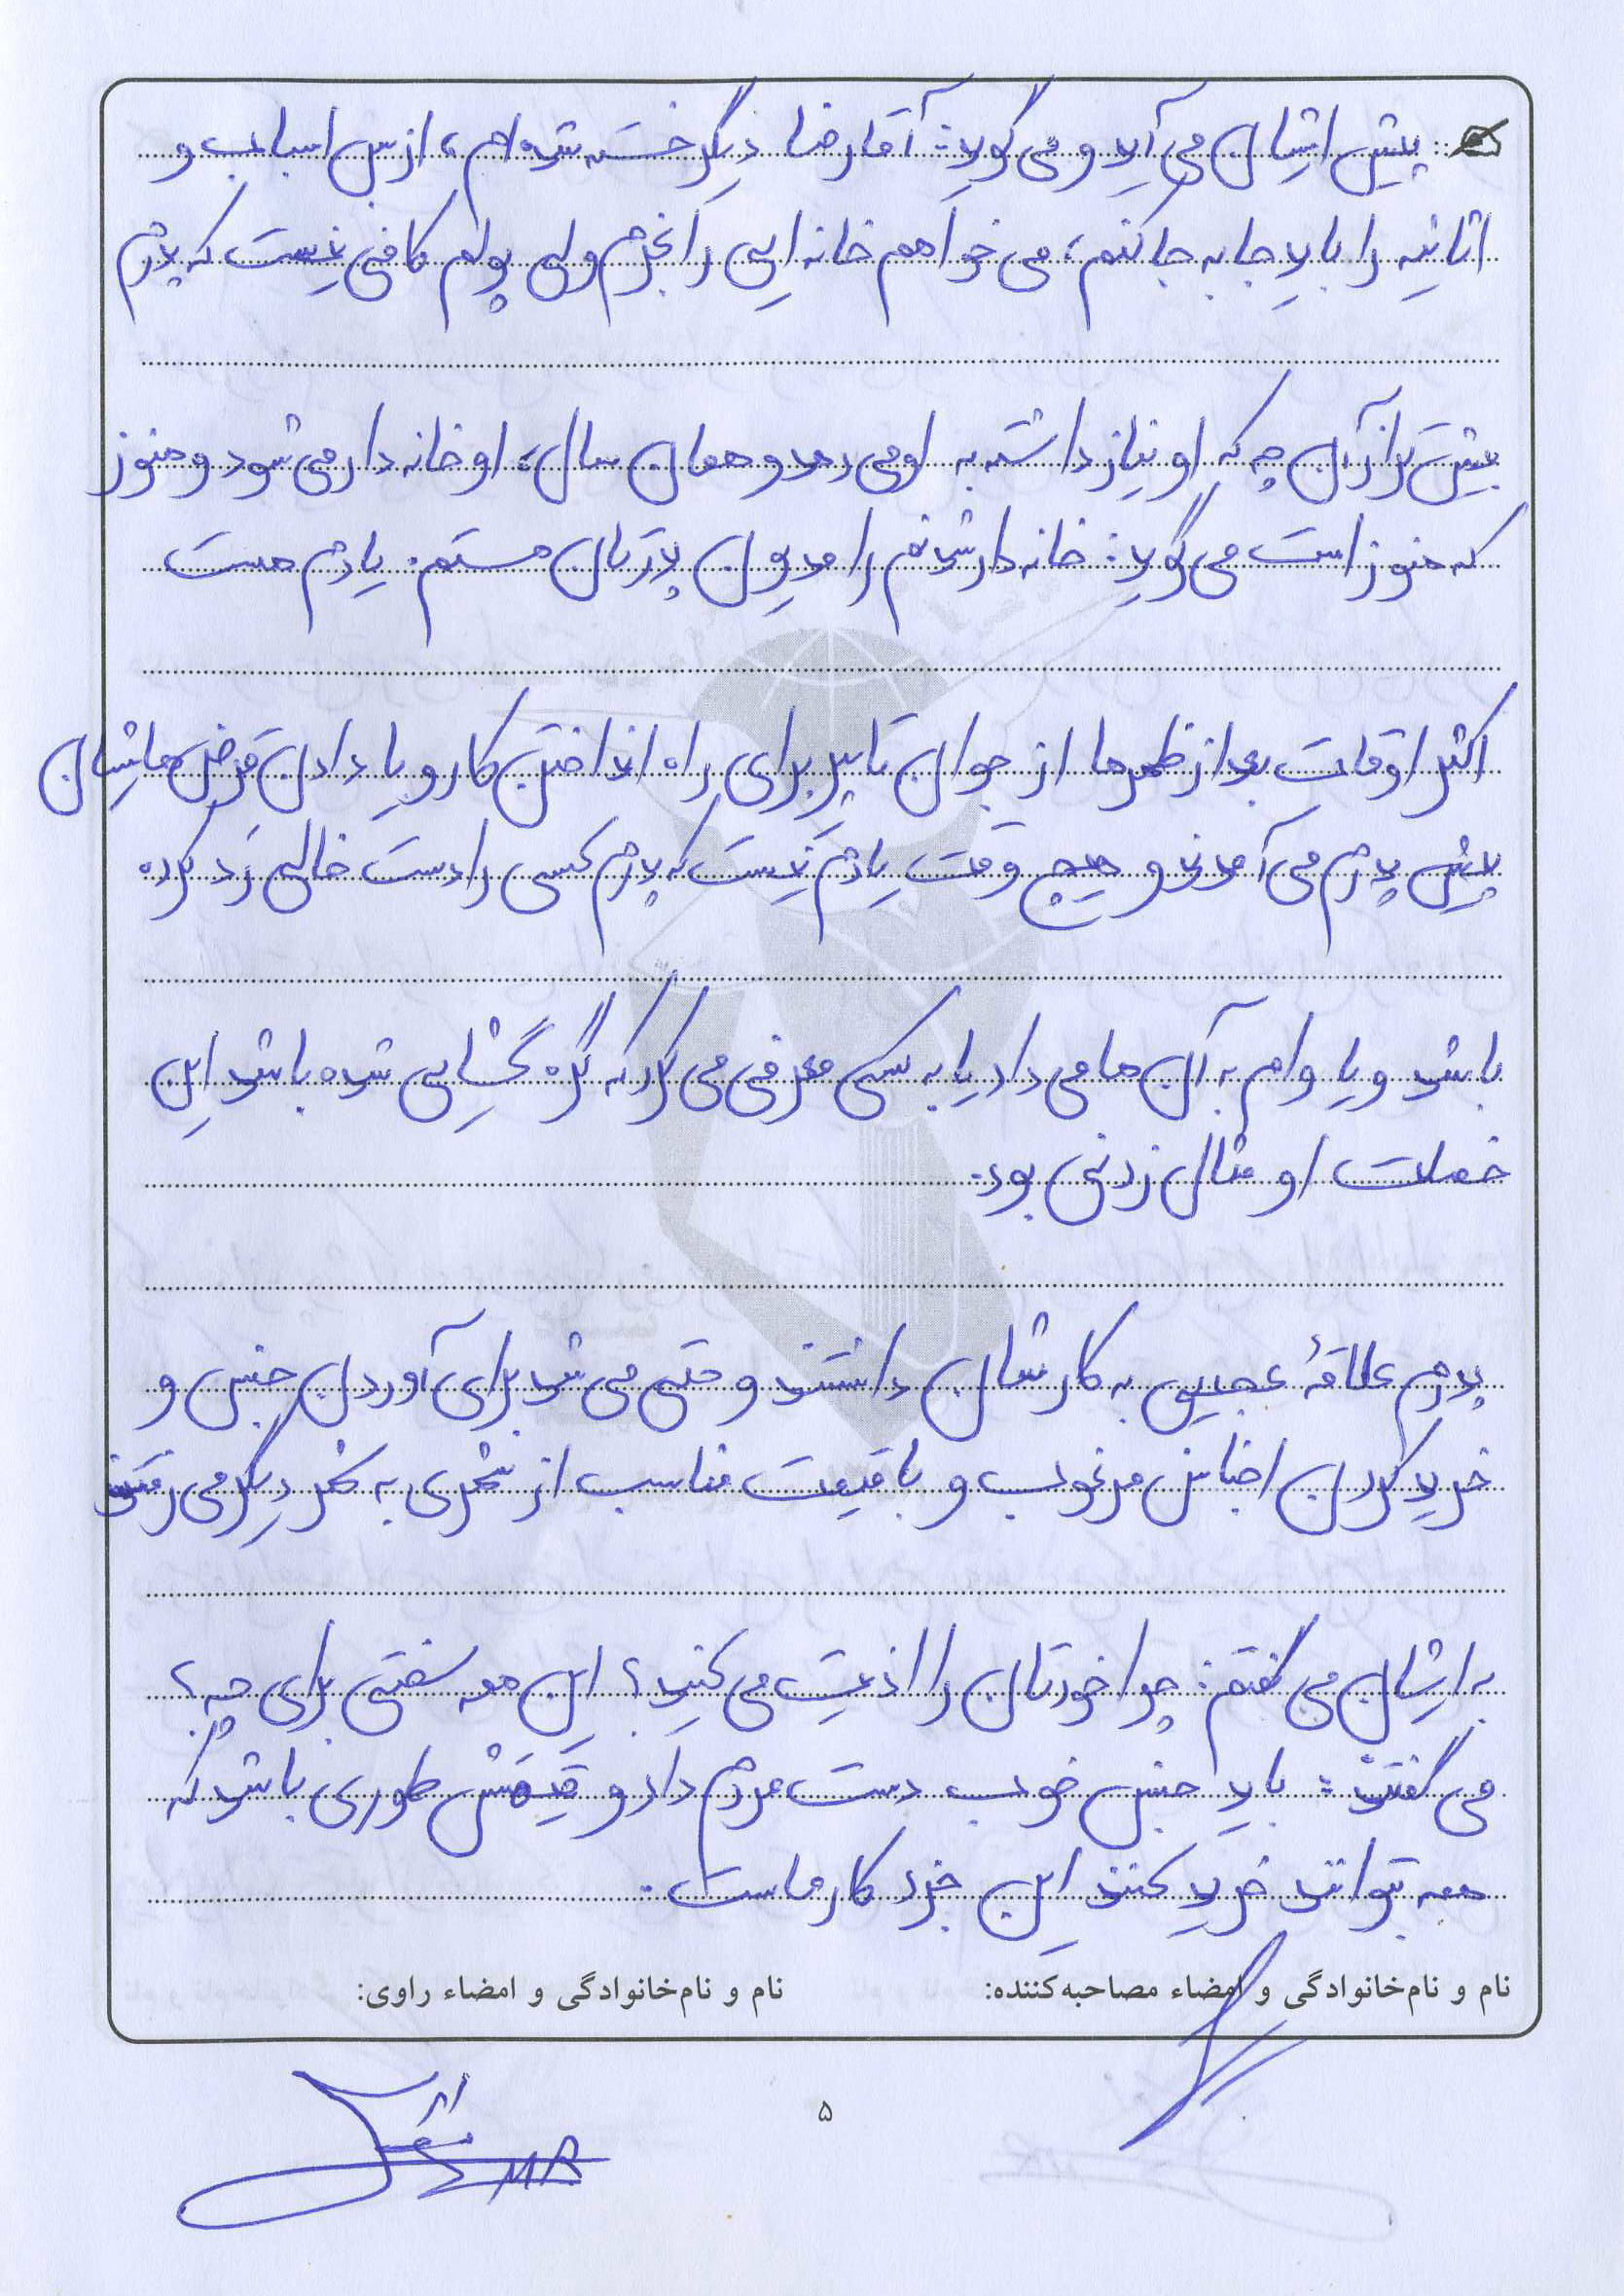 پیش ایشان می‌آید و می‌گوید: آقا رضا دیگر خسته شده‌ام، از بس اسباب و
اثاثیه را باید جا به جا کنم، می‌خواهم خانه‌ایی را بخرم ولی پولم کافی نیست که پدرم
بیشتر از آن چه که او نیاز داشته به او می‌دهد و همان سال، او خانه‌دار می‌شود و هنوز
که هنوز است می‌گوید: خانه‌دار شدنم را مدیون پدرتان هستم. یادم هست
اکثر اوقات بعد از ظهرها از جوان تا پیر برای راه انداختن کار و یا دادن قرض‌هایشان
پیش پدرم می‌آمدند و هیچ وقت یادم نیست که پدرم کسی را دست خالی رَد کرده
باشد و یا وام به آن‌ها می‌داد یا به کسی معرفی می‌کرد که گره گشایی شده باشد این
خصلت او مثال زدنی بود.
پدرم علاقهٔ عجیبی به کارشان داشتند و حتی می‌شد برای آوردن جنس و
خرید کردن اجناس مرغوب و با قیمت مناسب از شهری به شهر دیگر می‌رفتند
به ایشان می‌گفتم: چرا خودتان را اذیت می‌کنید؟ این همه سختی برای چه؟
می‌گفتند: باید جنس خوب دست مردم داد و قیمَتش طوری باشد که
همه بتوانند خرید کنند این جزء کار ماست.
نام و نام‌خانوادگی و امضاء مصاحبه‌کننده: نام و نام‌خانوادگی و امضاء راوی:
۵